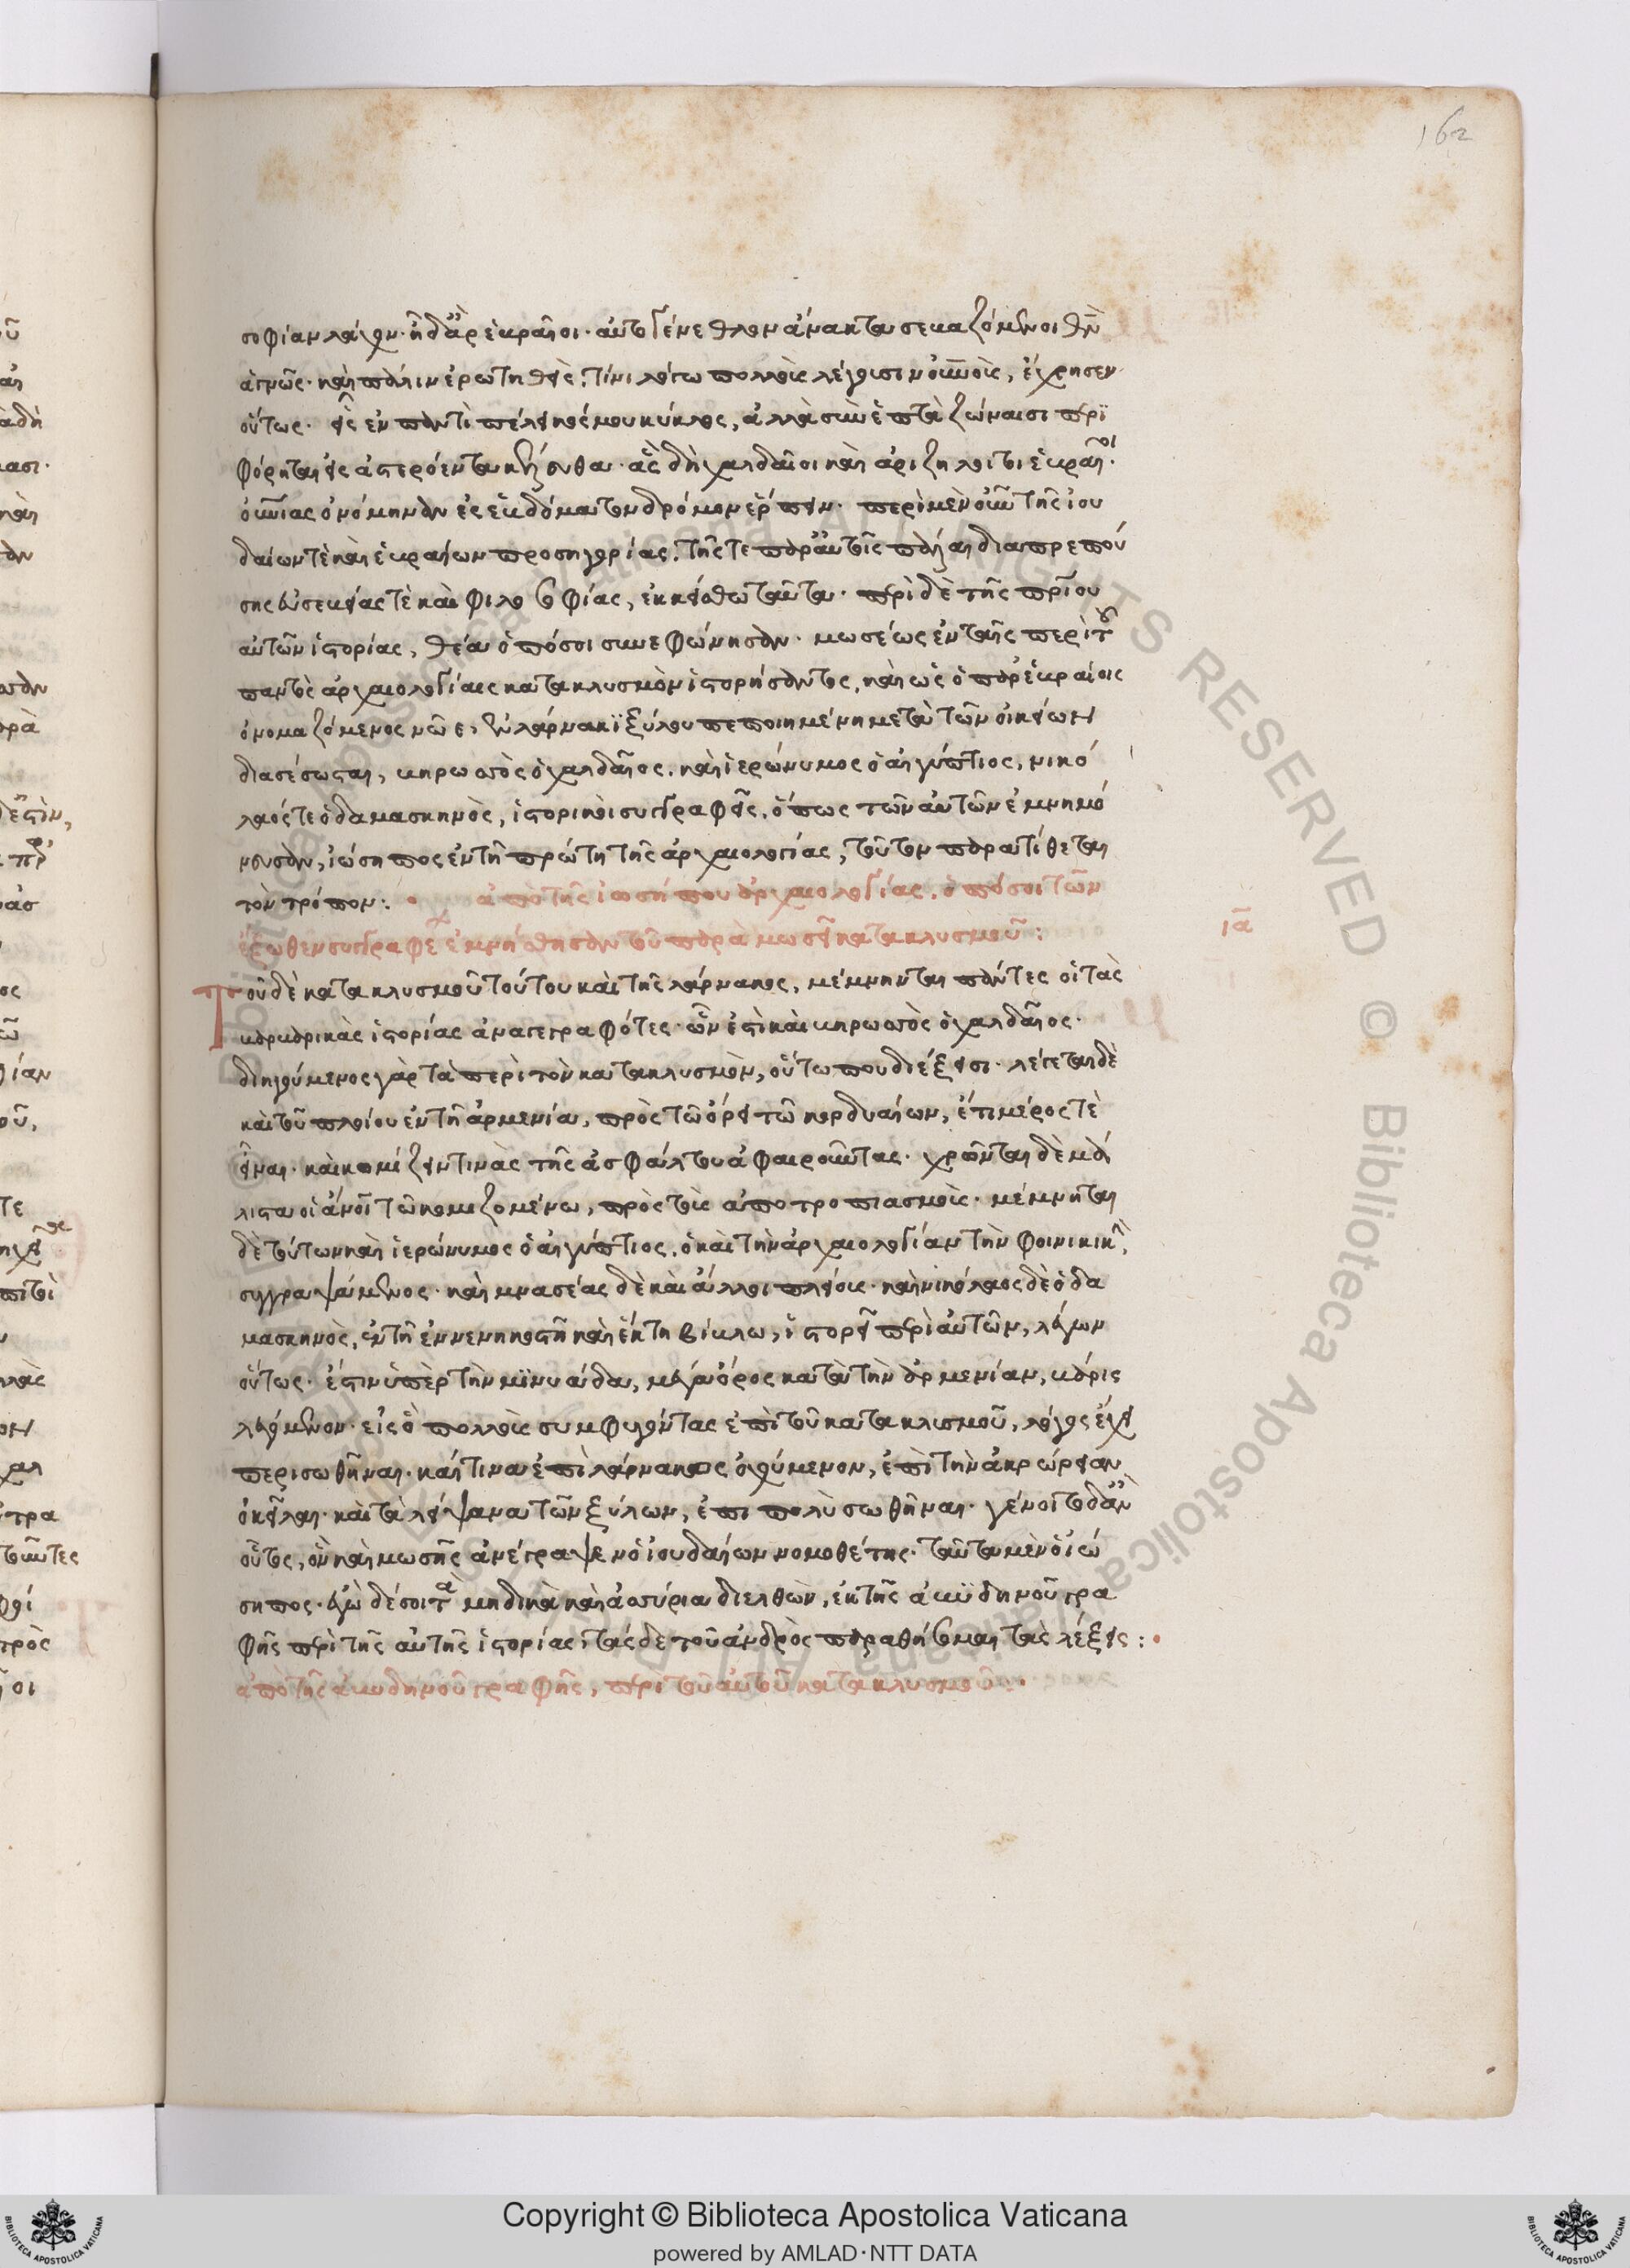 162
σοφίαν λάχον· ἠδ' ἄρ ἑβραῖοι· αὐτογένεθλον ἄνακτα σεβαζόμενοι θν̄
ἁγνῶς· καὶ πάλιν ἐρωτηθεὶς, τίνι λόγω πολλοὺς λέγουσιν οὐνοὺς, ἔχρησεν
οὕτως· εἷς ἐν παντὶ πέλει κόσμου κύκλος, ἀλλὰ σὺν ἑπτὰ ζώναισι περι
φόρηται εἰς ἀστερόεντα κέλευθα· ἃς δὴ χαλδαῖοι καὶ ἀριζήλωτοι ἑβραῖοι·
οὐνίας ὀνόμηναν ἐς ἑβδόματον δρόμον ἕρπειν· περὶ μὲν οὖν τῆς ἰου
δαίων τὲ καὶ ἑβραίων προσηγορίας, τῆς τε παρ' αὐτοῖς πάλαι διαπρεπού
σης εὐσεβείας τὲ καὶ φιλοσοφίας, ἐκκείσθω ταῦτα· περὶ δὲ τῆς πατρίου
αὐτῶν ἱστορίας, θέα ὁπόσοι συνεφώνησαν· μωσέως ἐν ταῖς περὶ τοῦ
παντὸς ἀρχαιολογίαις κατακλυσμὸν ἱστορήσαντος, καὶ ὡς ὁ παρ' ἑβραίοις
ὀνομαζόμενος νῶε, ἐν λάρνακι ξύλου πεποιημένη μετὰ τῶν οἰκείων
διασέσωσται, βηρωσσὸς ὁ χαλδαῖος, καὶ ἱερώνυμος ὁ αἰγύπτιος, νικό
λαός τε ὁ δαμασκηνὸς, ἱστορικοὶ συγγραφεῖς, ὅπως τῶν αὐτῶν ἐμνημό
νευσαν, ἰώσηπος ἐν τῆ πρώτη τῆς ἀρχαιολογίας, τοῦτον παρατίθεται
τὸν τρόπον: ἀπὸ τῆς ἰωσήπου ἀρχαιολογίας, ὁπόσοι τῶν
ἔξωθεν συγγραφέων ἐμνήσθησαν τοῦ παρὰ μωσεῖ κατακλυσμοῦ:
ια
Τοῦ δὲ κατακλυσμοῦ τούτου καὶ τῆς λάρνακος, μέμνηνται πάντες οἱ τὰς
βαρβαρικὰς ἱστορίας ἀναγεγραφότες· ὧν ἐστὶ καὶ βηρωσσὸς ὁ χαλδαῖος·
διηγούμενος γὰρ τὰ περὶ τὸν κατακλυσμὸν, οὕτω που διέξεισι· λέγεται δὲ
καὶ τοῦ πλοίου ἐν τῆ ἀρμενία, πρὸς τῶ ὄρει τῶ κορδυαίων, ἔτι μέρος τὲ
εἶναι· καὶ κομίζειν τινὰς τῆς ἀσφάλτου ἀφαιροῦντας· χρῶνται δὲ μά
λιστα οἱ ἄνοι τῶ κομιζομένω, πρὸς τοὺς ἀποτροπιασμοὺς· μέμνηται
δὲ τούτων καὶ ἱερώνυμος ὁ αἰγύπτιος, ὁ καὶ τὴν ἀρχαιολογίαν τὴν φοινικικὴν,
συγγραψάμενος· καὶ μνασέας δὲ καὶ ἄλλοι πλείους· καὶ νικόλαος δὲ ὁ δα
μασκηνὸς, ἐν τῆ ἐννενηκοστῆ καὶ ἕκτη βίβλω, ἱστορεῖ περὶ αὐτῶν, λέγων
οὕτως· ἔστιν ὑπὲρ τὴν μινυάδα, μέγα ὄρος κατὰ τὴν ἀρμενίαν, βάρις
λεγόμενον· εἰς ὃ πολλοὺς συμφυγόντας ἐπὶ τοῦ κατακλισμοῦ, λόγος ἔχει
περισωθῆναι· καί τινα ἐπὶ λάρνακος ὀχούμενον, ἐπὶ τὴν ἀκρώρειαν
ὀκεῖλαι· καὶ τὰ λείψανα τῶν ξύλων, ἐπι πολὺ σωθῆναι· γένοιτο δ' ἂν
οὗτος, ὃν καὶ μωσῆς ἀνέγραψεν ὁ ἰουδαίων νομοθέτης· ταῦτα μὲν ὁ ἰώ
σηπος· ἐγὼ δέ σοι τὰ μηδικὰ καὶ ἀσσύρια διελθὼν, ἐκ τῆς ἀβυδηνοῦ γρα
φῆς περὶ τῆς αὐτῆς ἱστορίας, τάς δε τοῦ ἀνδρὸς παραθήσομαι τὰς λέξεις:
ἀπὸ τῆς ἀβυδηνοῦ γραφῆς, περὶ τοῦ αὐτοῦ κατακλυσμοῦ:
Copyright © Biblioteca Apostolica Vaticana
powered by AMLAD·NTT DATA